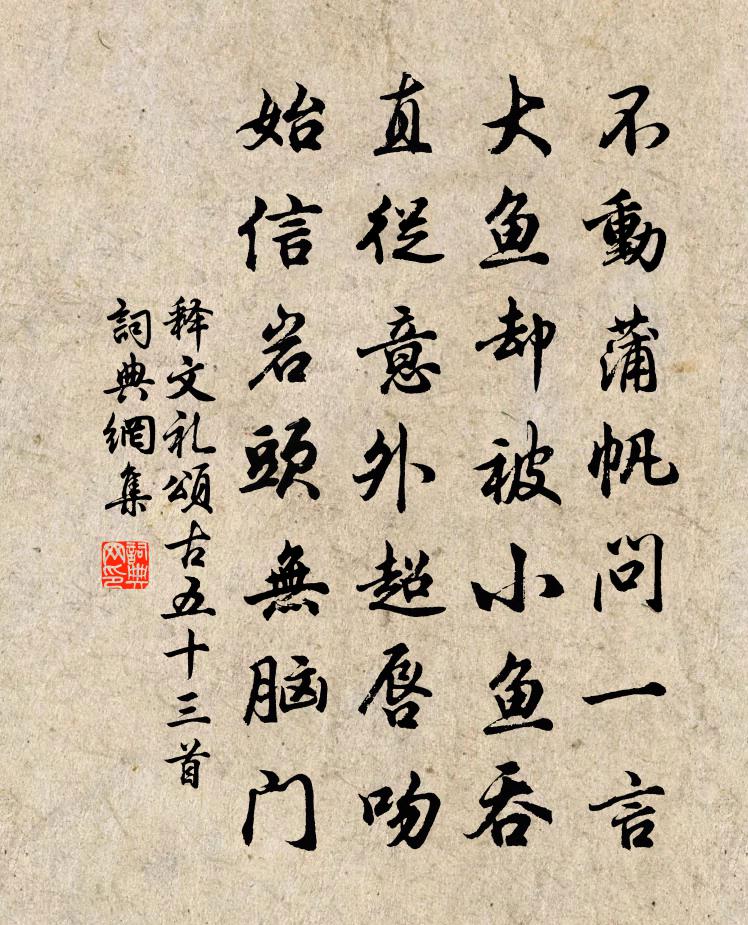 不動蒲帆問一言
大鱼却被小鱼吞
直從意外超唇吻
始信岩頭無脑门
释文礼頌古五十三首
詞典網集
詞典网印